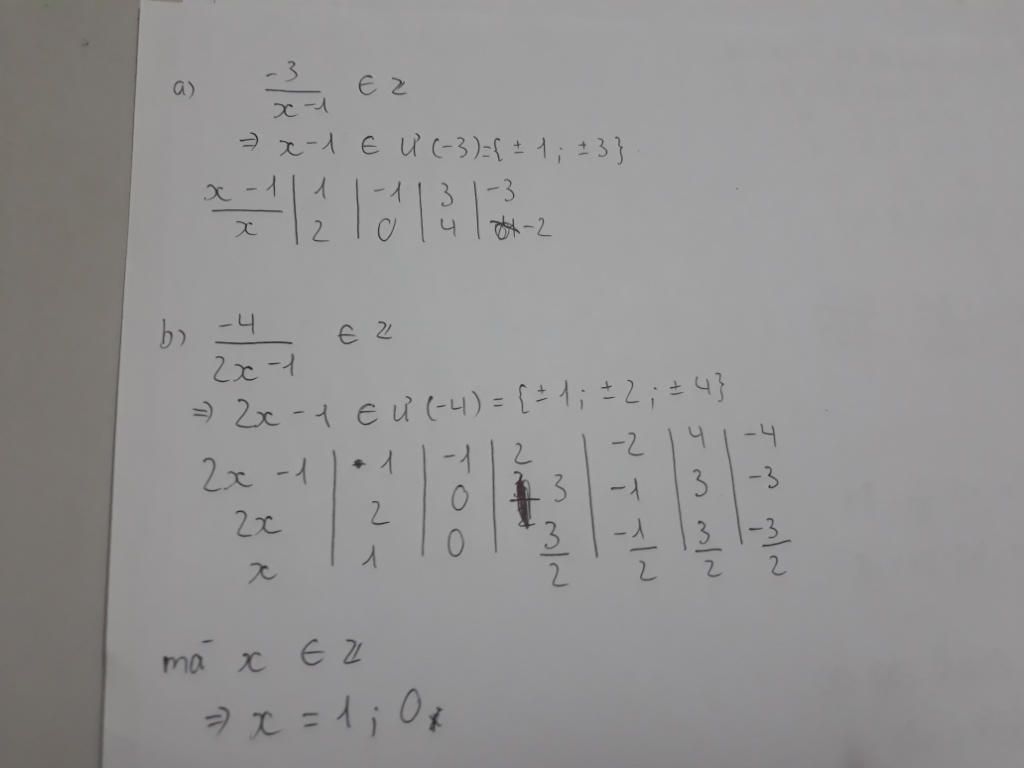 a) -3/(x-1) ∈ Z
⇒ x-1 ∈ Ư(-3)={±1; ±3}
x-1 | 1 | -1 | 3 | -3
x | 2 | 0 | 4 | -2
b) -4/(2x-1) ∈ Z
⇒ 2x-1 ∈ Ư(-4) = {±1; ±2; ±4}
2x-1 | 1 | -1 | 2 | -2 | 4 | -4
2x | 2 | 0 | 3 | -1 | 3 | -3
x | 1 | 0 | 3/2 | -1/2 | 3/2 | -3/2
mà x ∈ Z
⇒ x = 1; 0